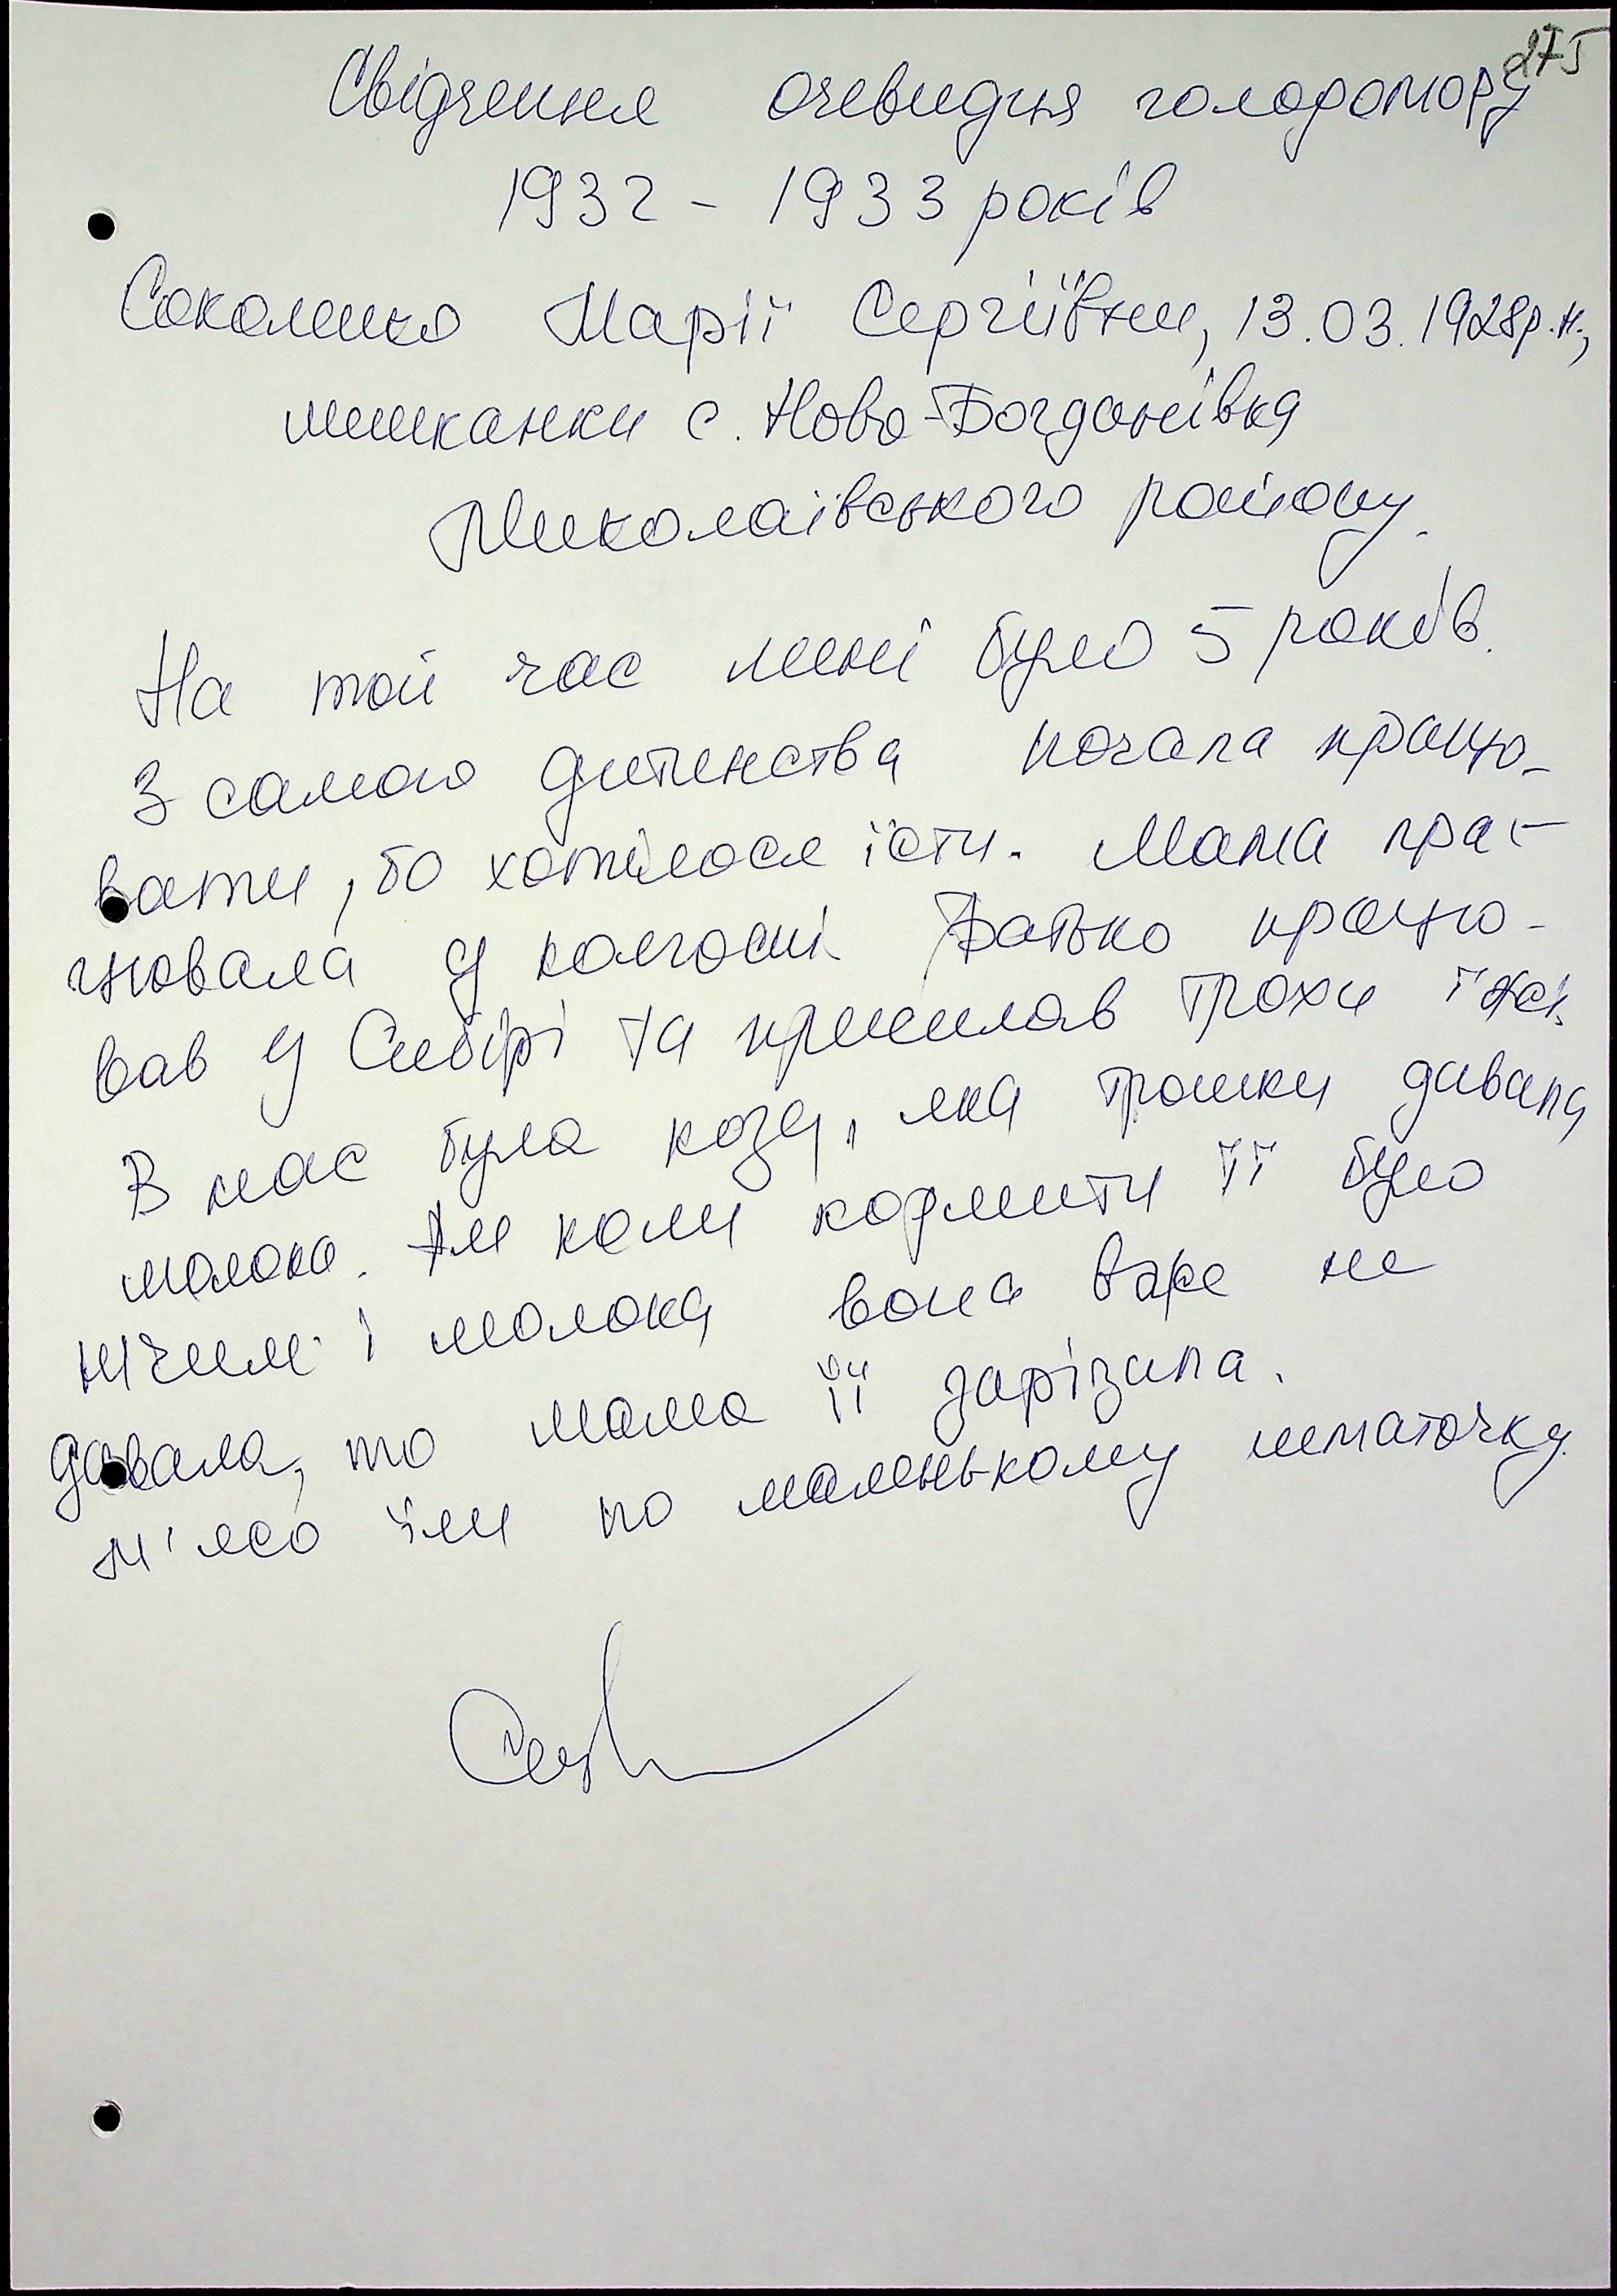 275
Свідчення очевидця голодомору
1932 - 1933 років
Соколенко Марії Сергіївни, 13.03.1928р.н.,
мешканки с. Ново-Богданівка
Миколаївського району.
На той час мені було 5 років.
З самого дитинства почала працю-
вати, бо хотілося їсти. Мама пра-
цювала у колгоспі. Батько працю-
вав у Сибірі та присилав трохи їжі.
В нас була коза, яка трошки давала
молоко. Але коли кормити її було
нічим і молока вона вже не
давала, то мама її зарізала.
М'ясо їли по маленькому шматочку.